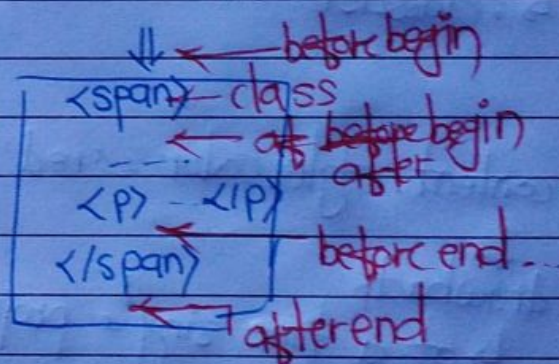 before begin
<span> class
af before begin
after
- - - -
<p> - </p>
before end...
</span>
after end